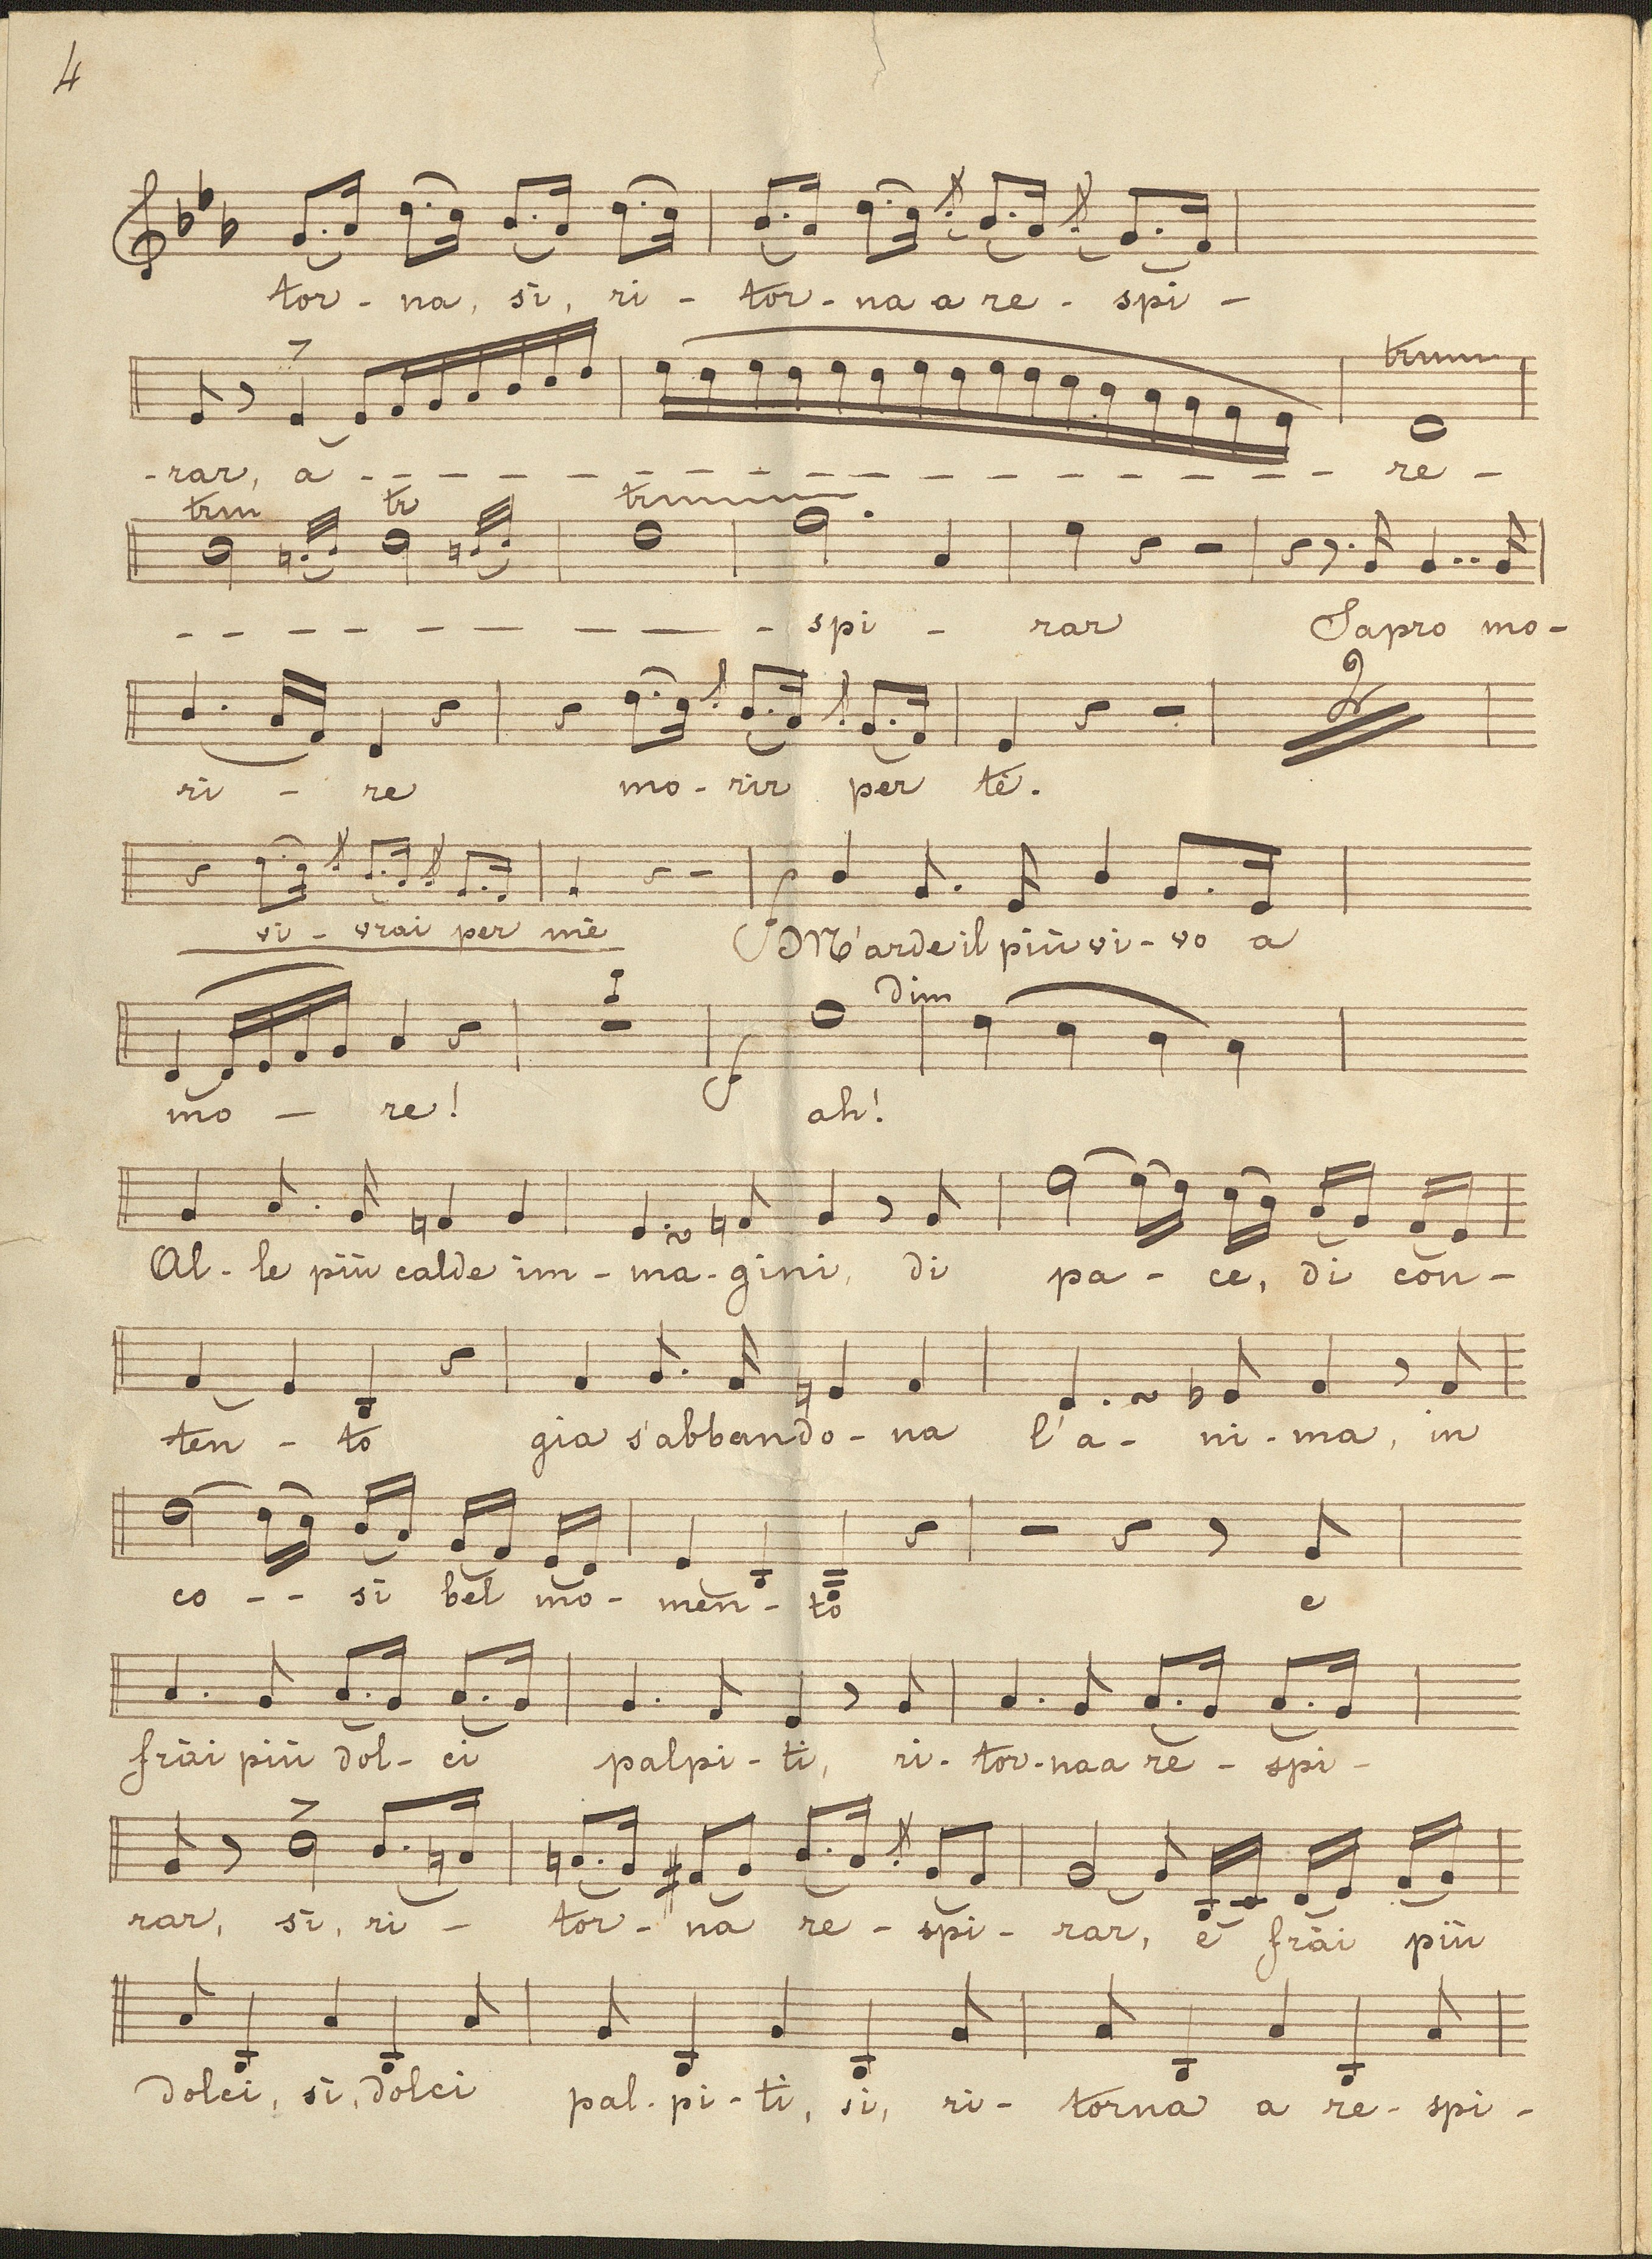 4
tor - na, si, ri - tor - na a re - spi -
- rar, a - re -
tr tr tr tr
- spi - rar Sapro mo -
2
ri - re mo - rir per te.
vi - vrai per me M'arde il più vi - vo a
f
1 dim
f
mo - re! ah!
Al - le più calde im - ma - gini, di pa - ce, di con -
ten - to gia s'abbando - na l'a - ni - ma, in
co - - si bel mo - men - to e
frài più dol - ci palpi - ti, ri - tor - na a re - spi -
rar, si, ri - tor - na re - spi - rar, e frài più
dolci, si, dolci pal - pi - ti, si, ri - torna a re - spi -